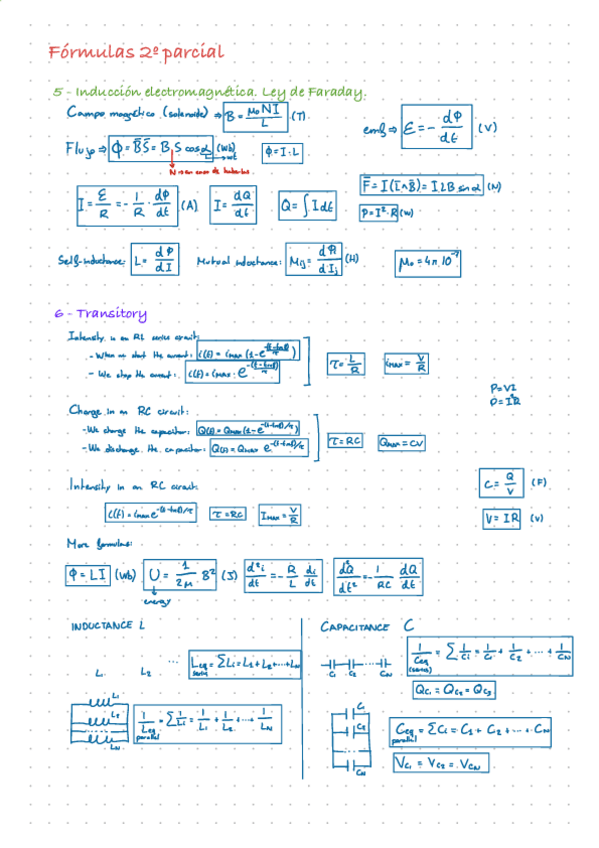 Fórmulas 2º parcial
5 - Inducción electromagnética. Ley de Faraday.
Campo magnético (solenoide) ⇒ B = μ₀NI / L (T)
emf ⇒ Ɛ = - dΦ / dt (V)
Flujo ⇒ Φ = B̄ S̄ = B, S cosα (Wb) Φ = I · L
→ wt
N →
I = Ɛ / R = - 1 / R · dΦ / dt (A) I = dQ / dt Q = ∫ I dt
F̄ = I (l ∧ B̄) = I L B senα (N)
P = I² · R (w)
Self-inductance: L = dΦ / dI Mutual inductance: (H) μ₀ = 4π 10⁻⁷
6 - Transitory
Intensity in an RL series circuit:
- When we start the current: τ = L / R imax = V / R
- We stop the current:
P = VI
P = I²R
Charge in an RC circuit:
- We charge the capacitor: τ = RC Qmax = CV
- We discharge the capacitor:
C = Q / V (F)
Intensity in an RC circuit
τ = RC Imax = V / R
V = IR (V)
More formulas:
Φ = LI (Wb) U = 1 / 2μ B² (J) d²i / dt = - R / L di / dt d²Q / dt² = - 1 / RC dQ / dt
energy
INDUCTANCE L
L₁ L₂ ... Leq = ΣLi = L₁ + L₂ + ... + LN
series
L₁
L₂
LN
1 / Leq = Σ 1 / Li = 1 / L₁ + 1 / L₂ + ... + 1 / LN
parallel
CAPACITANCE C
C₁ C₂ CN
1 / Ceq = Σ 1 / Ci = 1 / C₁ + 1 / C₂ + ... + 1 / CN
(series)
QC₁ = QC₂ = QC₃
C₁
C₂
CN
Ceq = ΣCi = C₁ + C₂ + ... CN
parallel
VC₁ = VC₂ = VCN